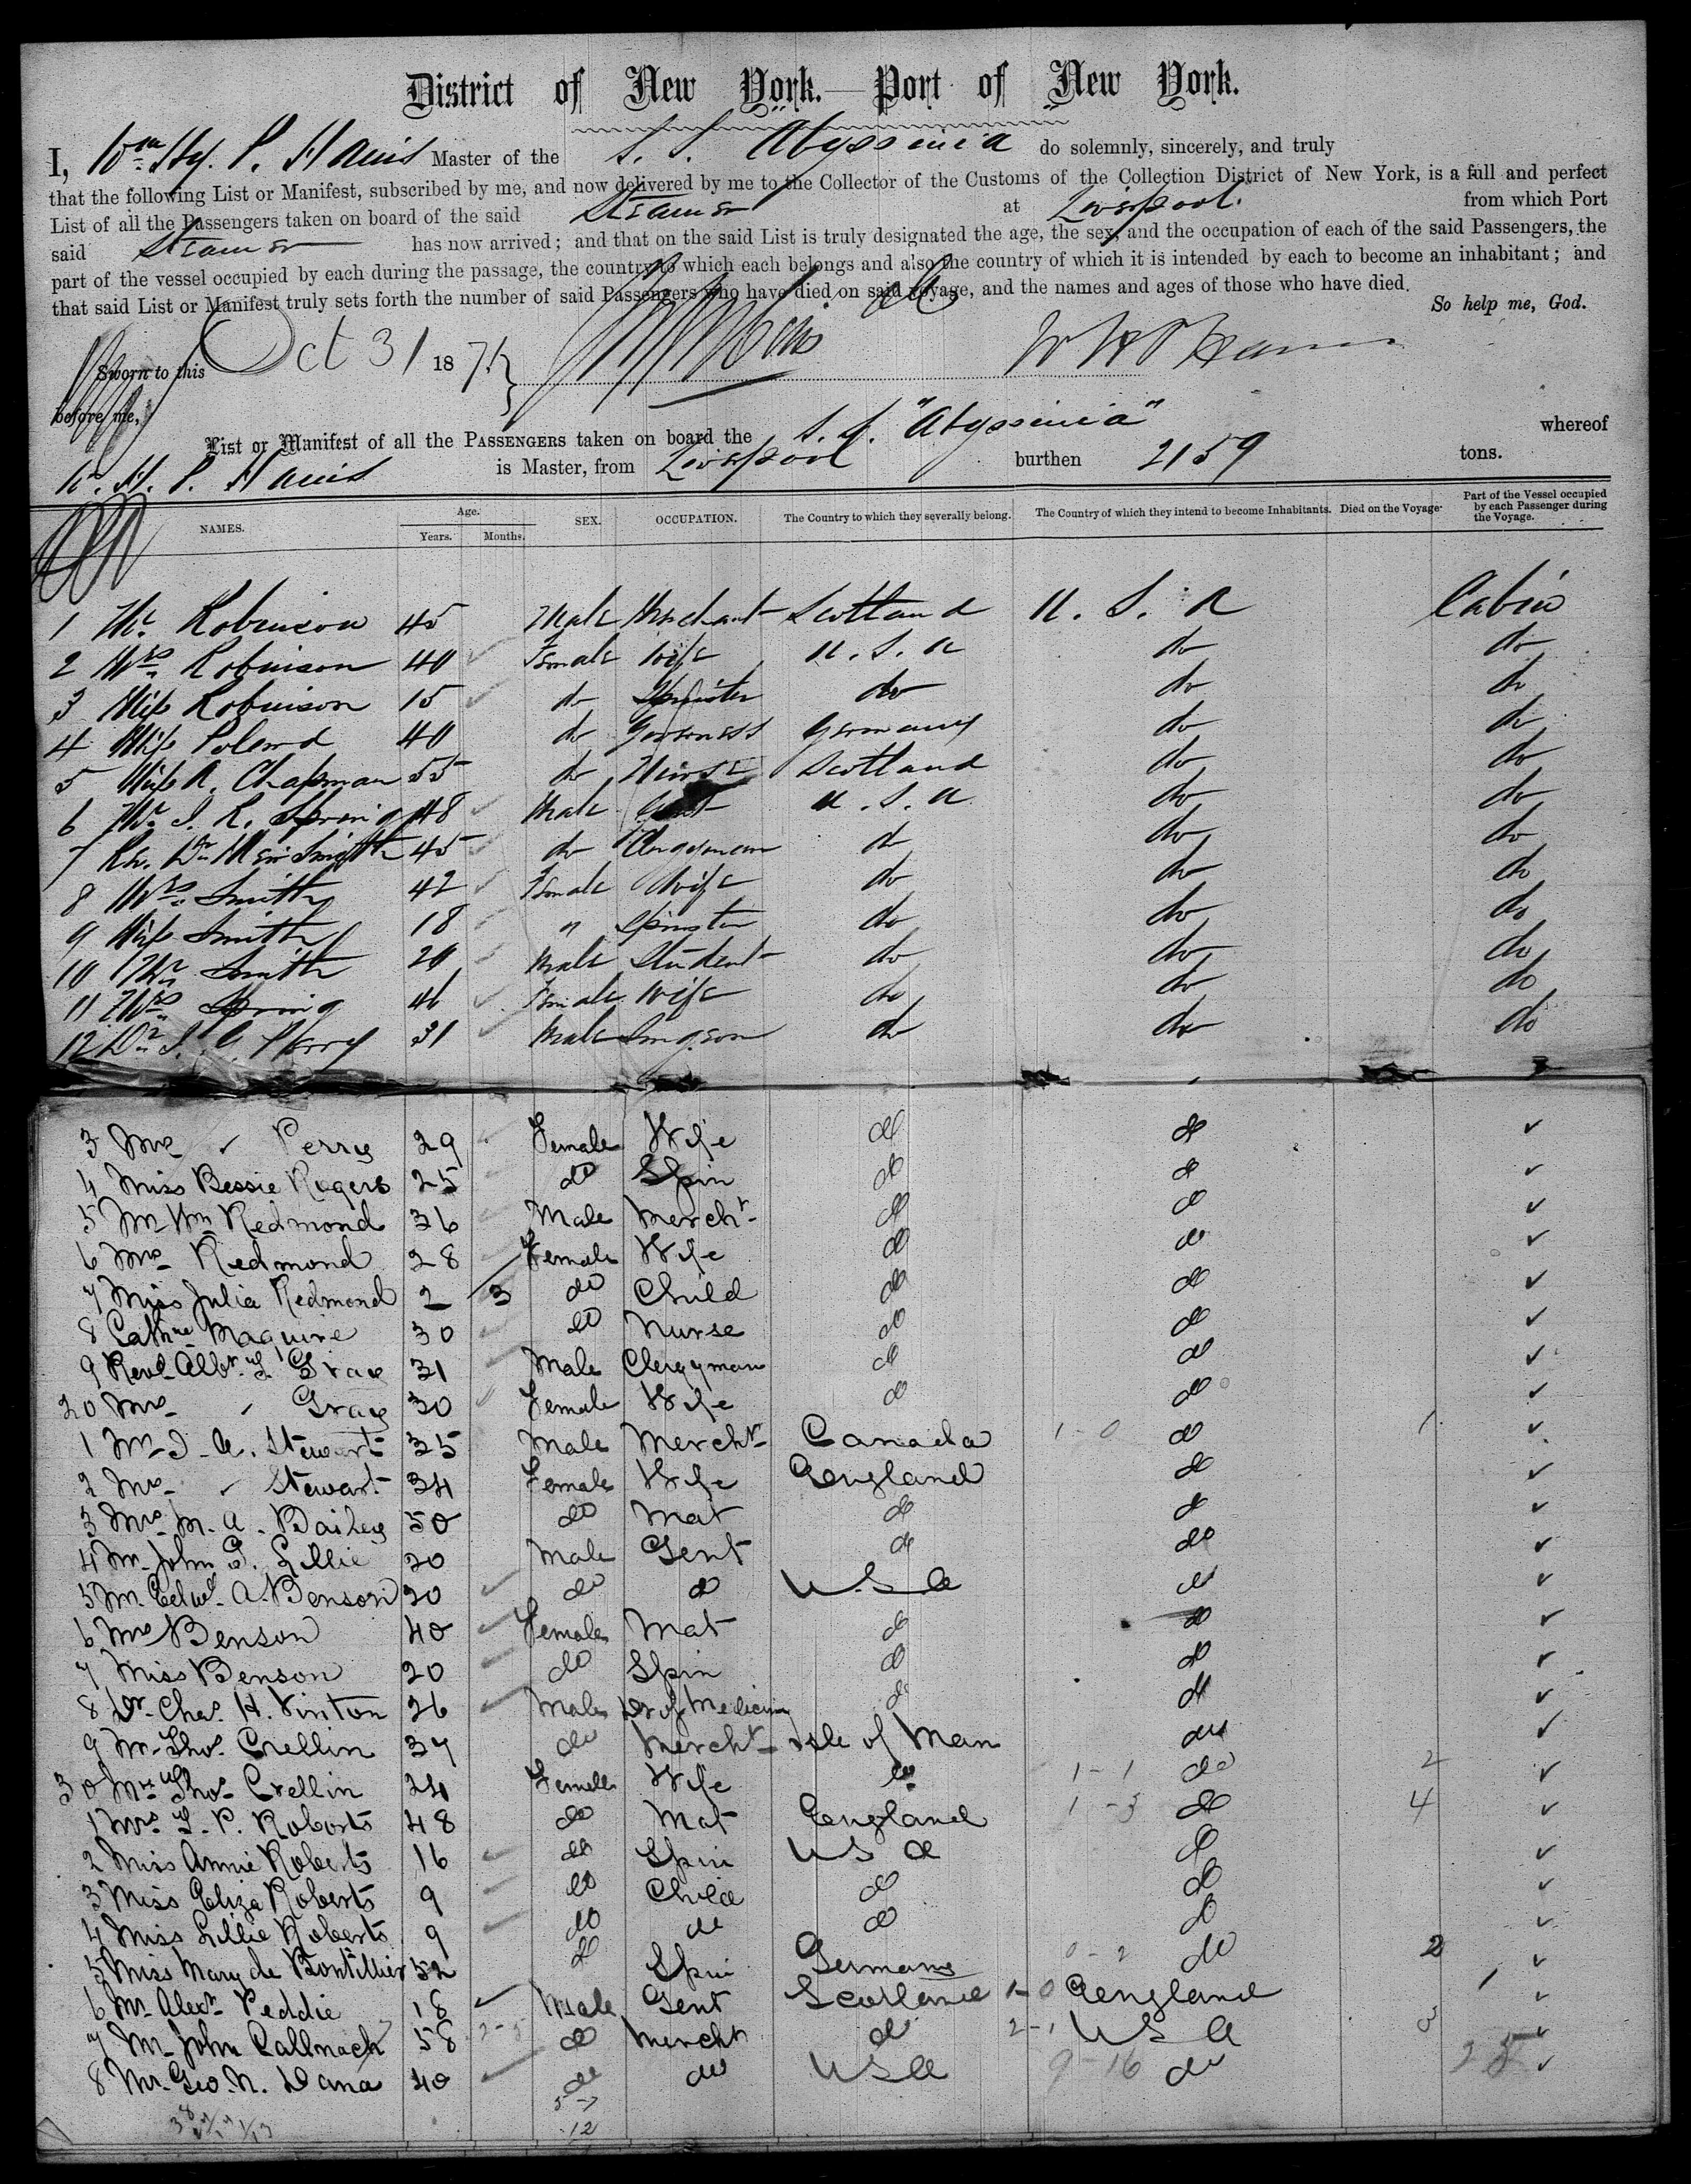 District of New York.—Port of New York.
I, Wm. Hy. P. Hains Master of the S. S. Abyssinia do solemnly, sincerely, and truly
that the following List or Manifest, subscribed by me, and now delivered by me to the Collector of the Customs of the Collection District of New York, is a full and perfect
List of all the Passengers taken on board of the said Steamer at Liverpool. from which Port
said Steamer has now arrived; and that on the said List is truly designated the age, the sex, and the occupation of each of the said Passengers, the
part of the vessel occupied by each during the passage, the country to which each belongs and also the country of which it is intended by each to become an inhabitant; and
that said List or Manifest truly sets forth the number of said Passengers who have died on said voyage, and the names and ages of those who have died.
So help me, God.
Sworn to this Oct 31 1871.
before me,
List or Manifest of all the PASSENGERS taken on board the S. S. "Abyssinia" whereof
W. H. P. Hains is Master, from Liverpool burthen 2159 tons.
NAMES. Age. Years. Months. SEX. OCCUPATION. The Country to which they severally belong. The Country of which they intend to become Inhabitants. Died on the Voyage. Part of the Vessel occupied by each Passenger during the Voyage.
1 Mr. Robinson 45 Male Merchant Scotland U. S. A Cabin
2 Mrs Robinson 40 Female Wife U. S. A do do
3 Miss Robinson 15 do Spinster do do do
4 Miss 40 do Governess Germany do do
5 Miss A. Chapman 55 do Nurse Scotland do do
6 Mr. S. R. Spring 48 Male U. S. A do do
7 Smith 45 do Clergyman do do do
8 Mrs. Smith 42 Female Wife do do do
9 Miss Smith 18 " Spinster do do do
10 Mr Smith 20 Male Student do do do
11 Mrs Spring 46 Female Wife do do do
12 Dr. Perry 31 Male Surgeon do do do
3 Mrs " Perry 29 Female Wife do do
4 Miss Bessie Rogers 25 do Spin do do
5 Mr Wm Redmond 36 Male Mercht do do
6 Mrs Redmond 28 Female Wife do do
7 Miss Julia Redmond 2 3 do Child do do
8 Cathne Maguire 30 do Nurse do do
9 Revd Albt. Z. Gray 31 Male Clergyman do do
20 Mrs " Gray 30 Female Wife do do
1 Mr J. A. Stewart 35 Male Mercht Canada 1-0 do 1
2 Mrs " Stewart 34 Female Wife England do
3 Mrs M. A. Bailey 50 do Mat do do
4 Mr John G. Lillie 20 Male Gent do do
5 Mr Edwd. A. Benson 20 do do U S A do
6 Mrs Benson 40 Female Mat do do
7 Miss Benson 20 do Spin do do
8 Dr. Chas. H. Vinton 26 Male Dr of Medicine do do
9 Mr Thos. Crellin 37 do Mercht Isle of Man do
30 Mrs Thos. Crellin 24 Female Wife do 1-1 do 2
1 Mrs L. P. Roberts 48 do Mat England 1-3 do 4
2 Miss Annie Roberts 16 do Spin U S A do
3 Miss Eliza Roberts 9 do Child do do
4 Miss Lillie Roberts 9 do do do do
5 Miss Mary de Bontillier 52 do Spin Germany 0-2 do 2
6 Mr Alexr Peddie 18 Male Gent Scotland 1-0 England 1
7 Mr John Callnach 58 do Mercht do 2-1 U S A 3
8 Mr. Geo. N. Dana 40 do do U S A 9-16 do 25
5-7
12